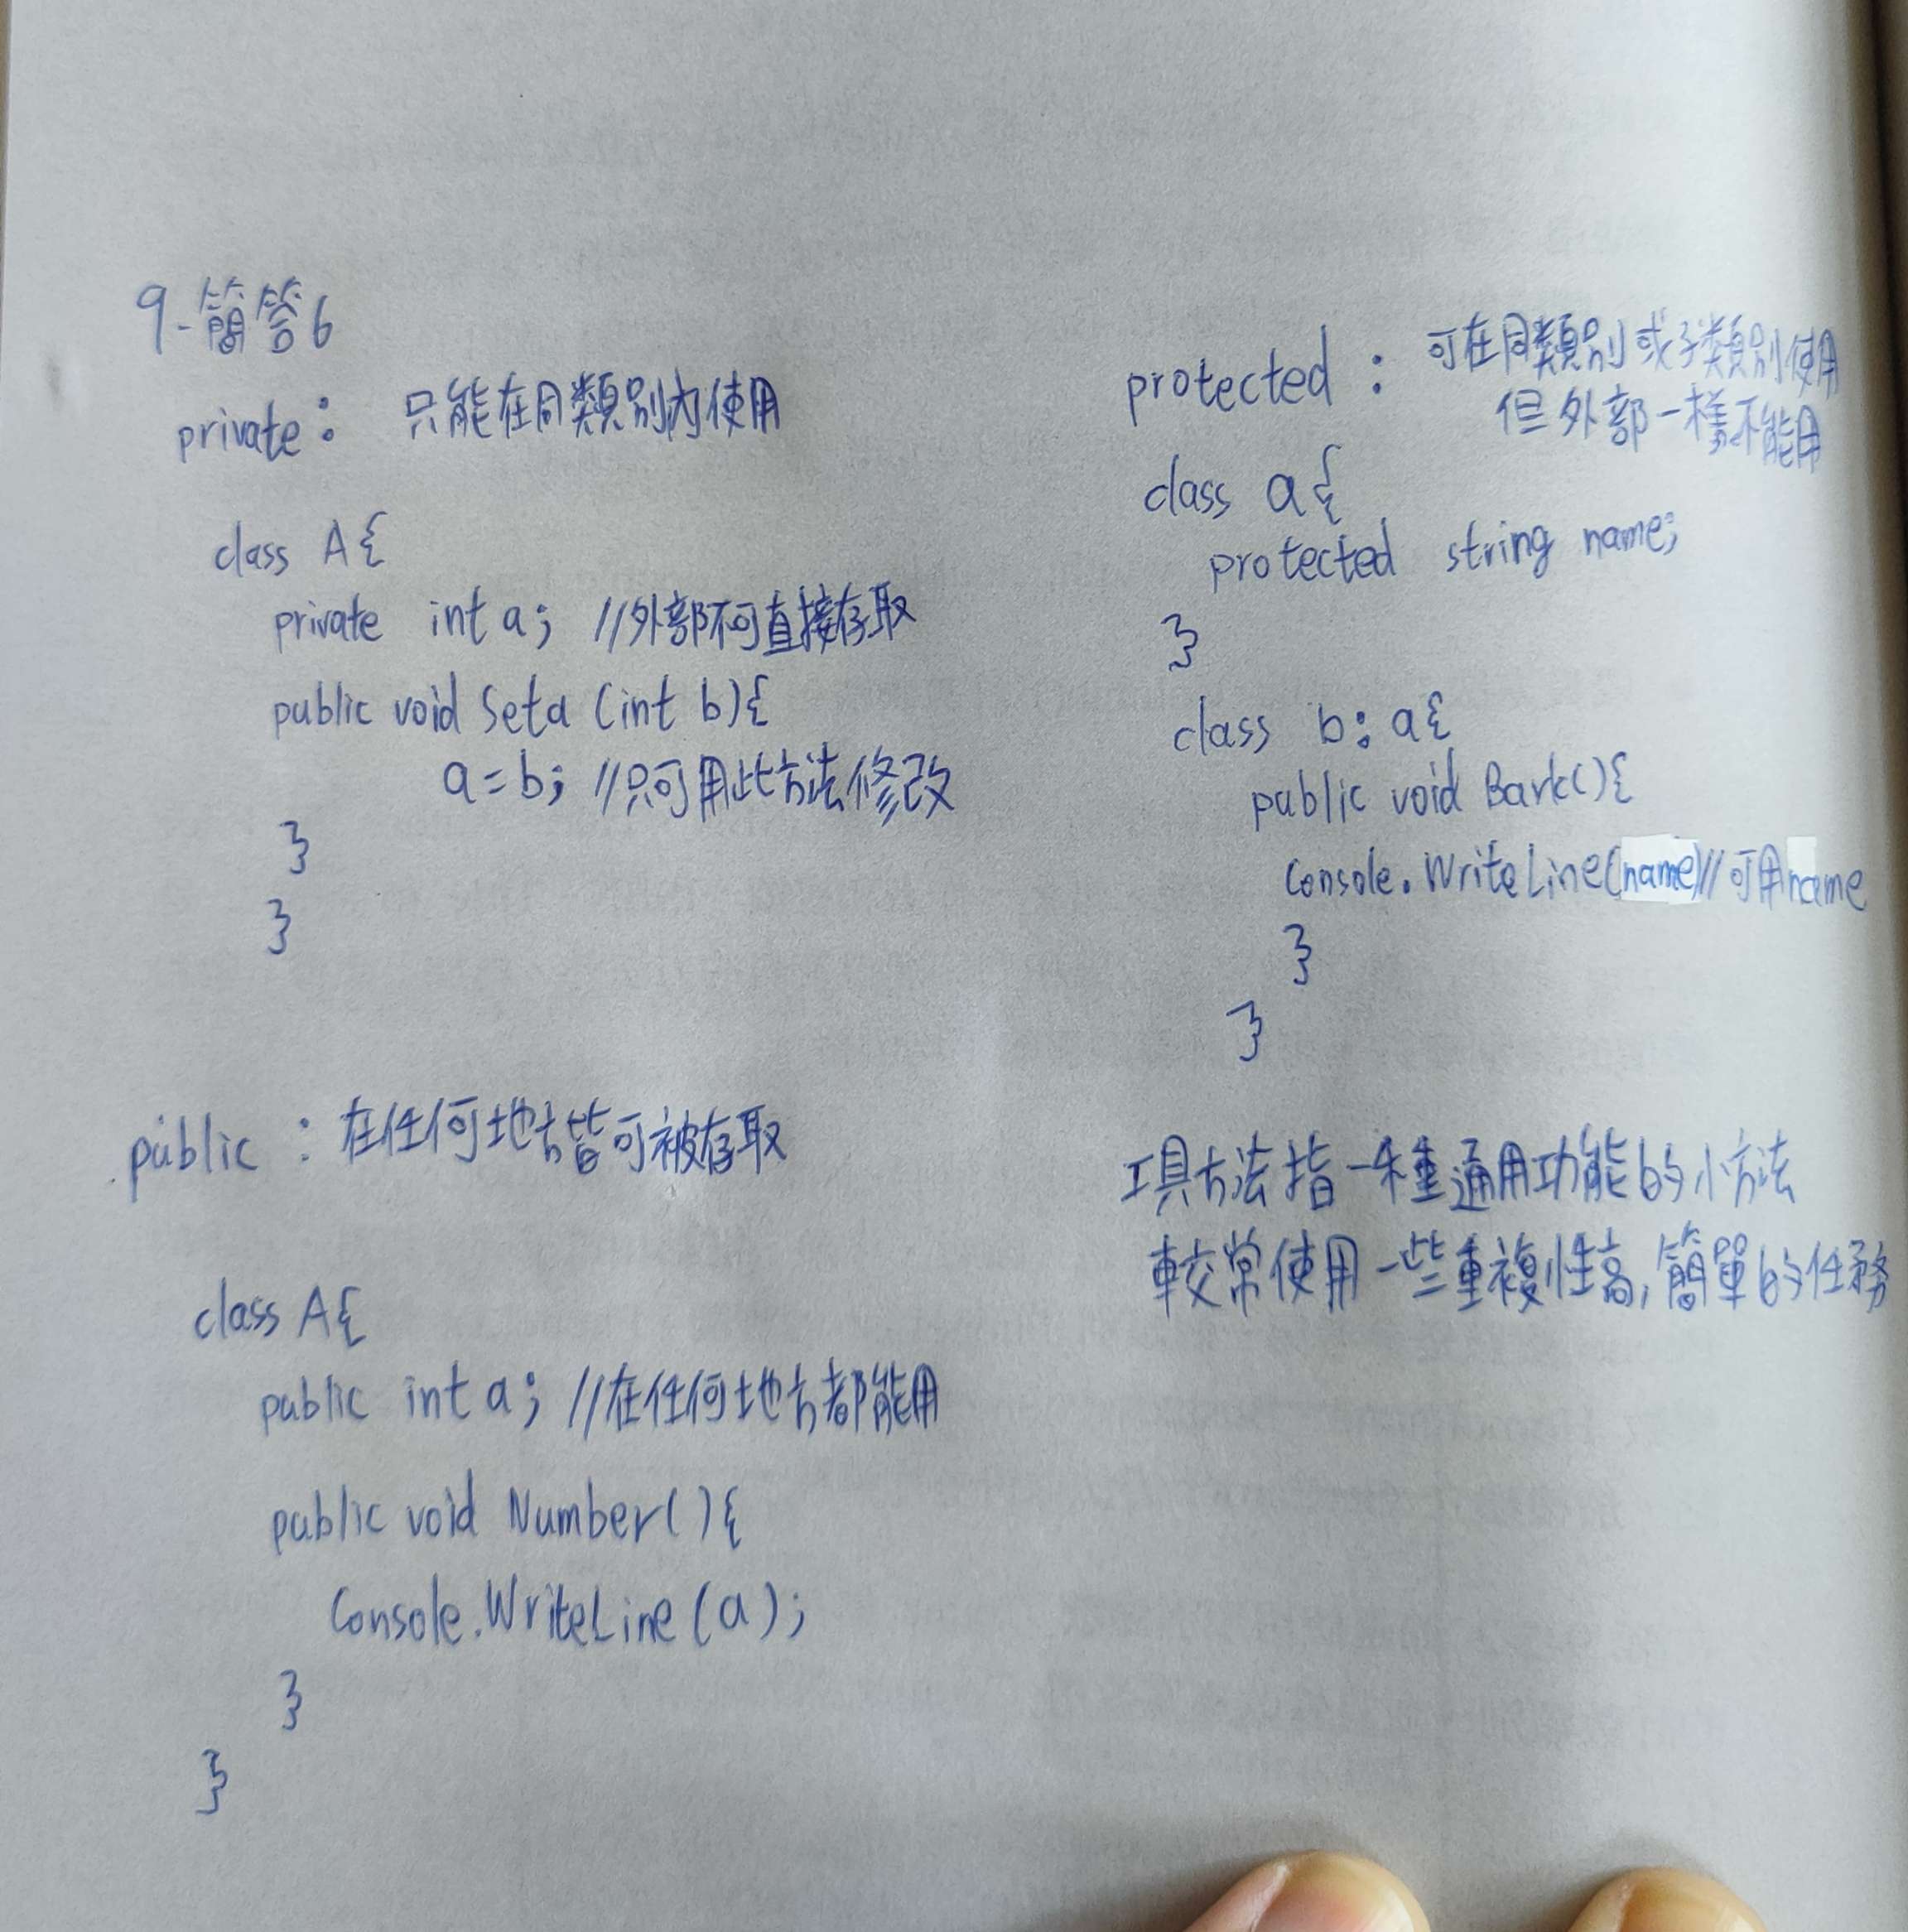 9-簡答6
private: 只能在同類別內使用
class A{
private int a; //外部不可直接存取
public void Seta (int b){
a=b; //只可用此方法修改
}
}
public : 在任何地方皆可被存取
class A{
public int a; //在任何地方都能用
public void Number(){
Console.WriteLine(a);
}
}
protected : 可在同類別或子類別使用
但外部一樣不能用
class a{
protected string name;
}
class b: a{
public void Bark(){
Console.WriteLine(name)//可用name
}
}
工具方法指一種通用功能的小方法
較常使用一些重複性高,簡單的任務